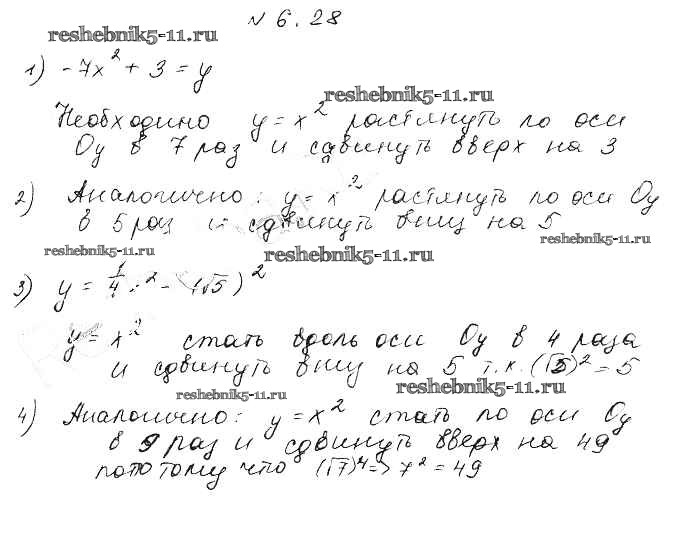 № 6.28
reshebnik5-11.ru
1) -7x² + 3 = y
reshebnik5-11.ru
Необходимо y = x² растянуть по оси
Oy в 7 раз и сдвинуть вверх на 3
2) Аналогично: y = x² растянуть по оси Oy
в 5 раз и сдвинуть вниз на 5
reshebnik5-11.ru
reshebnik5-11.ru
reshebnik5-11.ru
3) y = 1/4 x² - (√5)²
y = x² стать вдоль оси Oy в 4 раза
и сдвинуть вниз на 5 т.к. (√5)² = 5
reshebnik5-11.ru
reshebnik5-11.ru
4) Аналогично: y = x² стать по оси Oy
в 9 раз и сдвинуть вверх на 49
потому что (√7)⁴ => 7² = 49